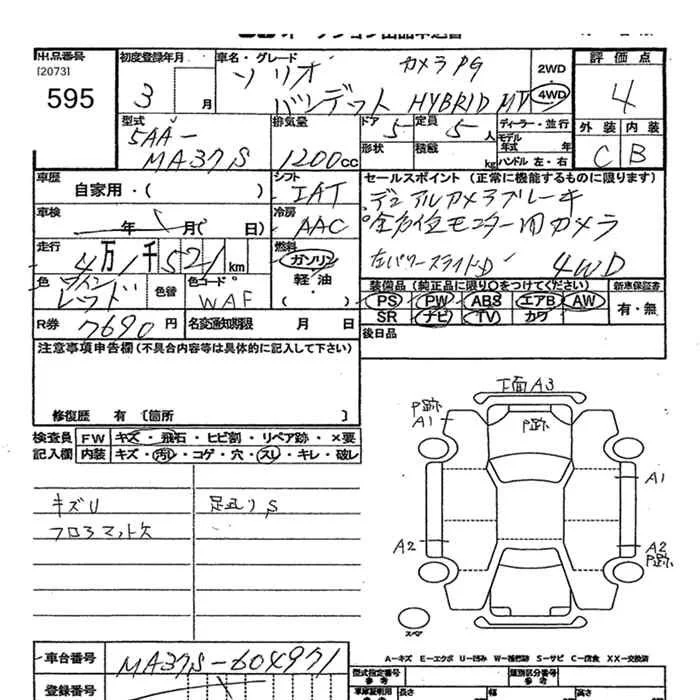 出品番号
[2073]
595
初度登録年月
3 月
車名・グレード
ソリオ カメラPG
バンデット HYBRID MV
2WD
4WD
評価点
4
外装 内装
C B
型式
5AA-
MA37S
排気量
1200cc
ドア 5
定員 5人
形状
積載 kg
ディーラー・並行
モデル年式 年
ハンドル 左・右
車歴
自家用・( )
シフト
IAT
車検
年 月( 日)
冷房
AAC
走行
4万1千521km
燃料
ガソリン
軽油
色
ワイン
レッド
色替
色コード
WAF
R券 7690円
名変通知期限 月 日
セールスポイント (正常に機能するものに限ります)
デュアルカメラブレーキ
全方位モニター用カメラ
左パワースライドD 4WD
装備品(純正品に限り○をつけてください)
PS PW ABS エアB AW
SR ナビ TV カワ
新車保証書
有・無
後日品
注意事項申告欄(不具合内容等は具体的に記入して下さい)
修復歴 有 [箇所 ]
検査員
記入欄
FW キズ・飛石・ヒビ割・リペア跡・×要
内装 キズ・汚レ・コゲ・穴・スレ・キレ・破レ
キズU
フロアマット欠
足廻りS
下面A3
P跡
A1
P跡
A1
A2
A2
P跡
スペア
A-キズ E-エクボ U-凹み W-補修跡 S-サビ C-腐食 XX-交換済
車台番号 MA37S-604971
登録番号
型式指定番号
参考
類別区分番号
参考
長さ
幅
高さ